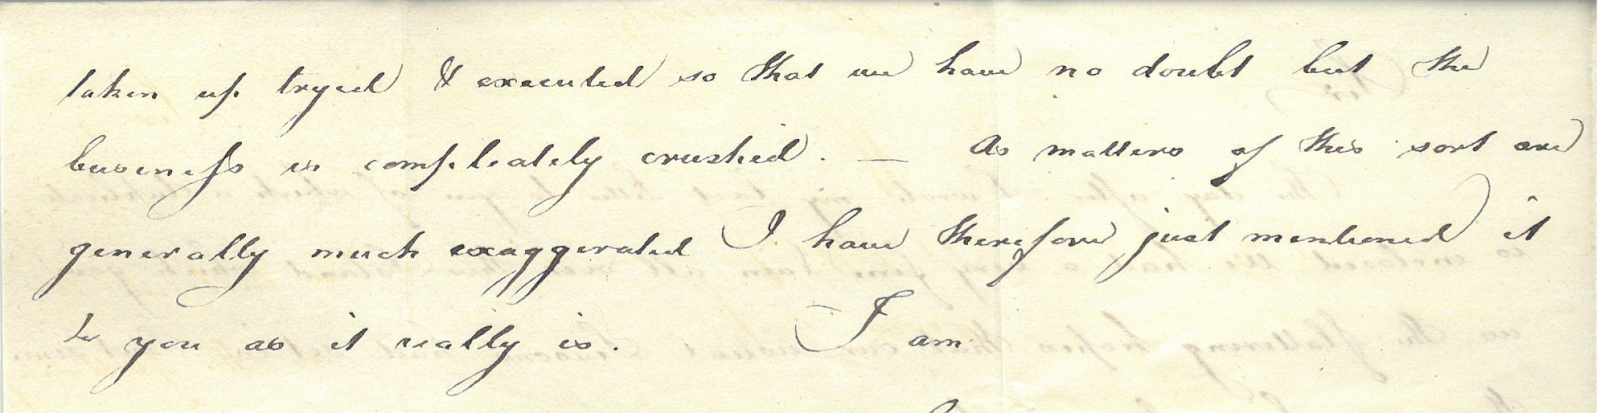 taken up tryed & executed so that we have no doubt but the
business is compleately crushed. — As matters of this sort are
generally much exaggerated I have therefore just mentioned it
to you as it really is. I am